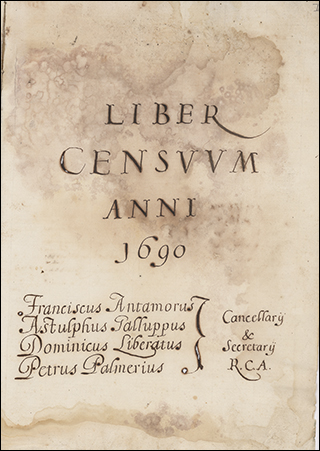 LIBER
CENSVVM
ANNI
1690
Franciscus Antamorus
Astulphus Galluppus
Dominicus Liberatus
Petrus Palmerius
Cancellarij
&
Secretarij
R.C.A.